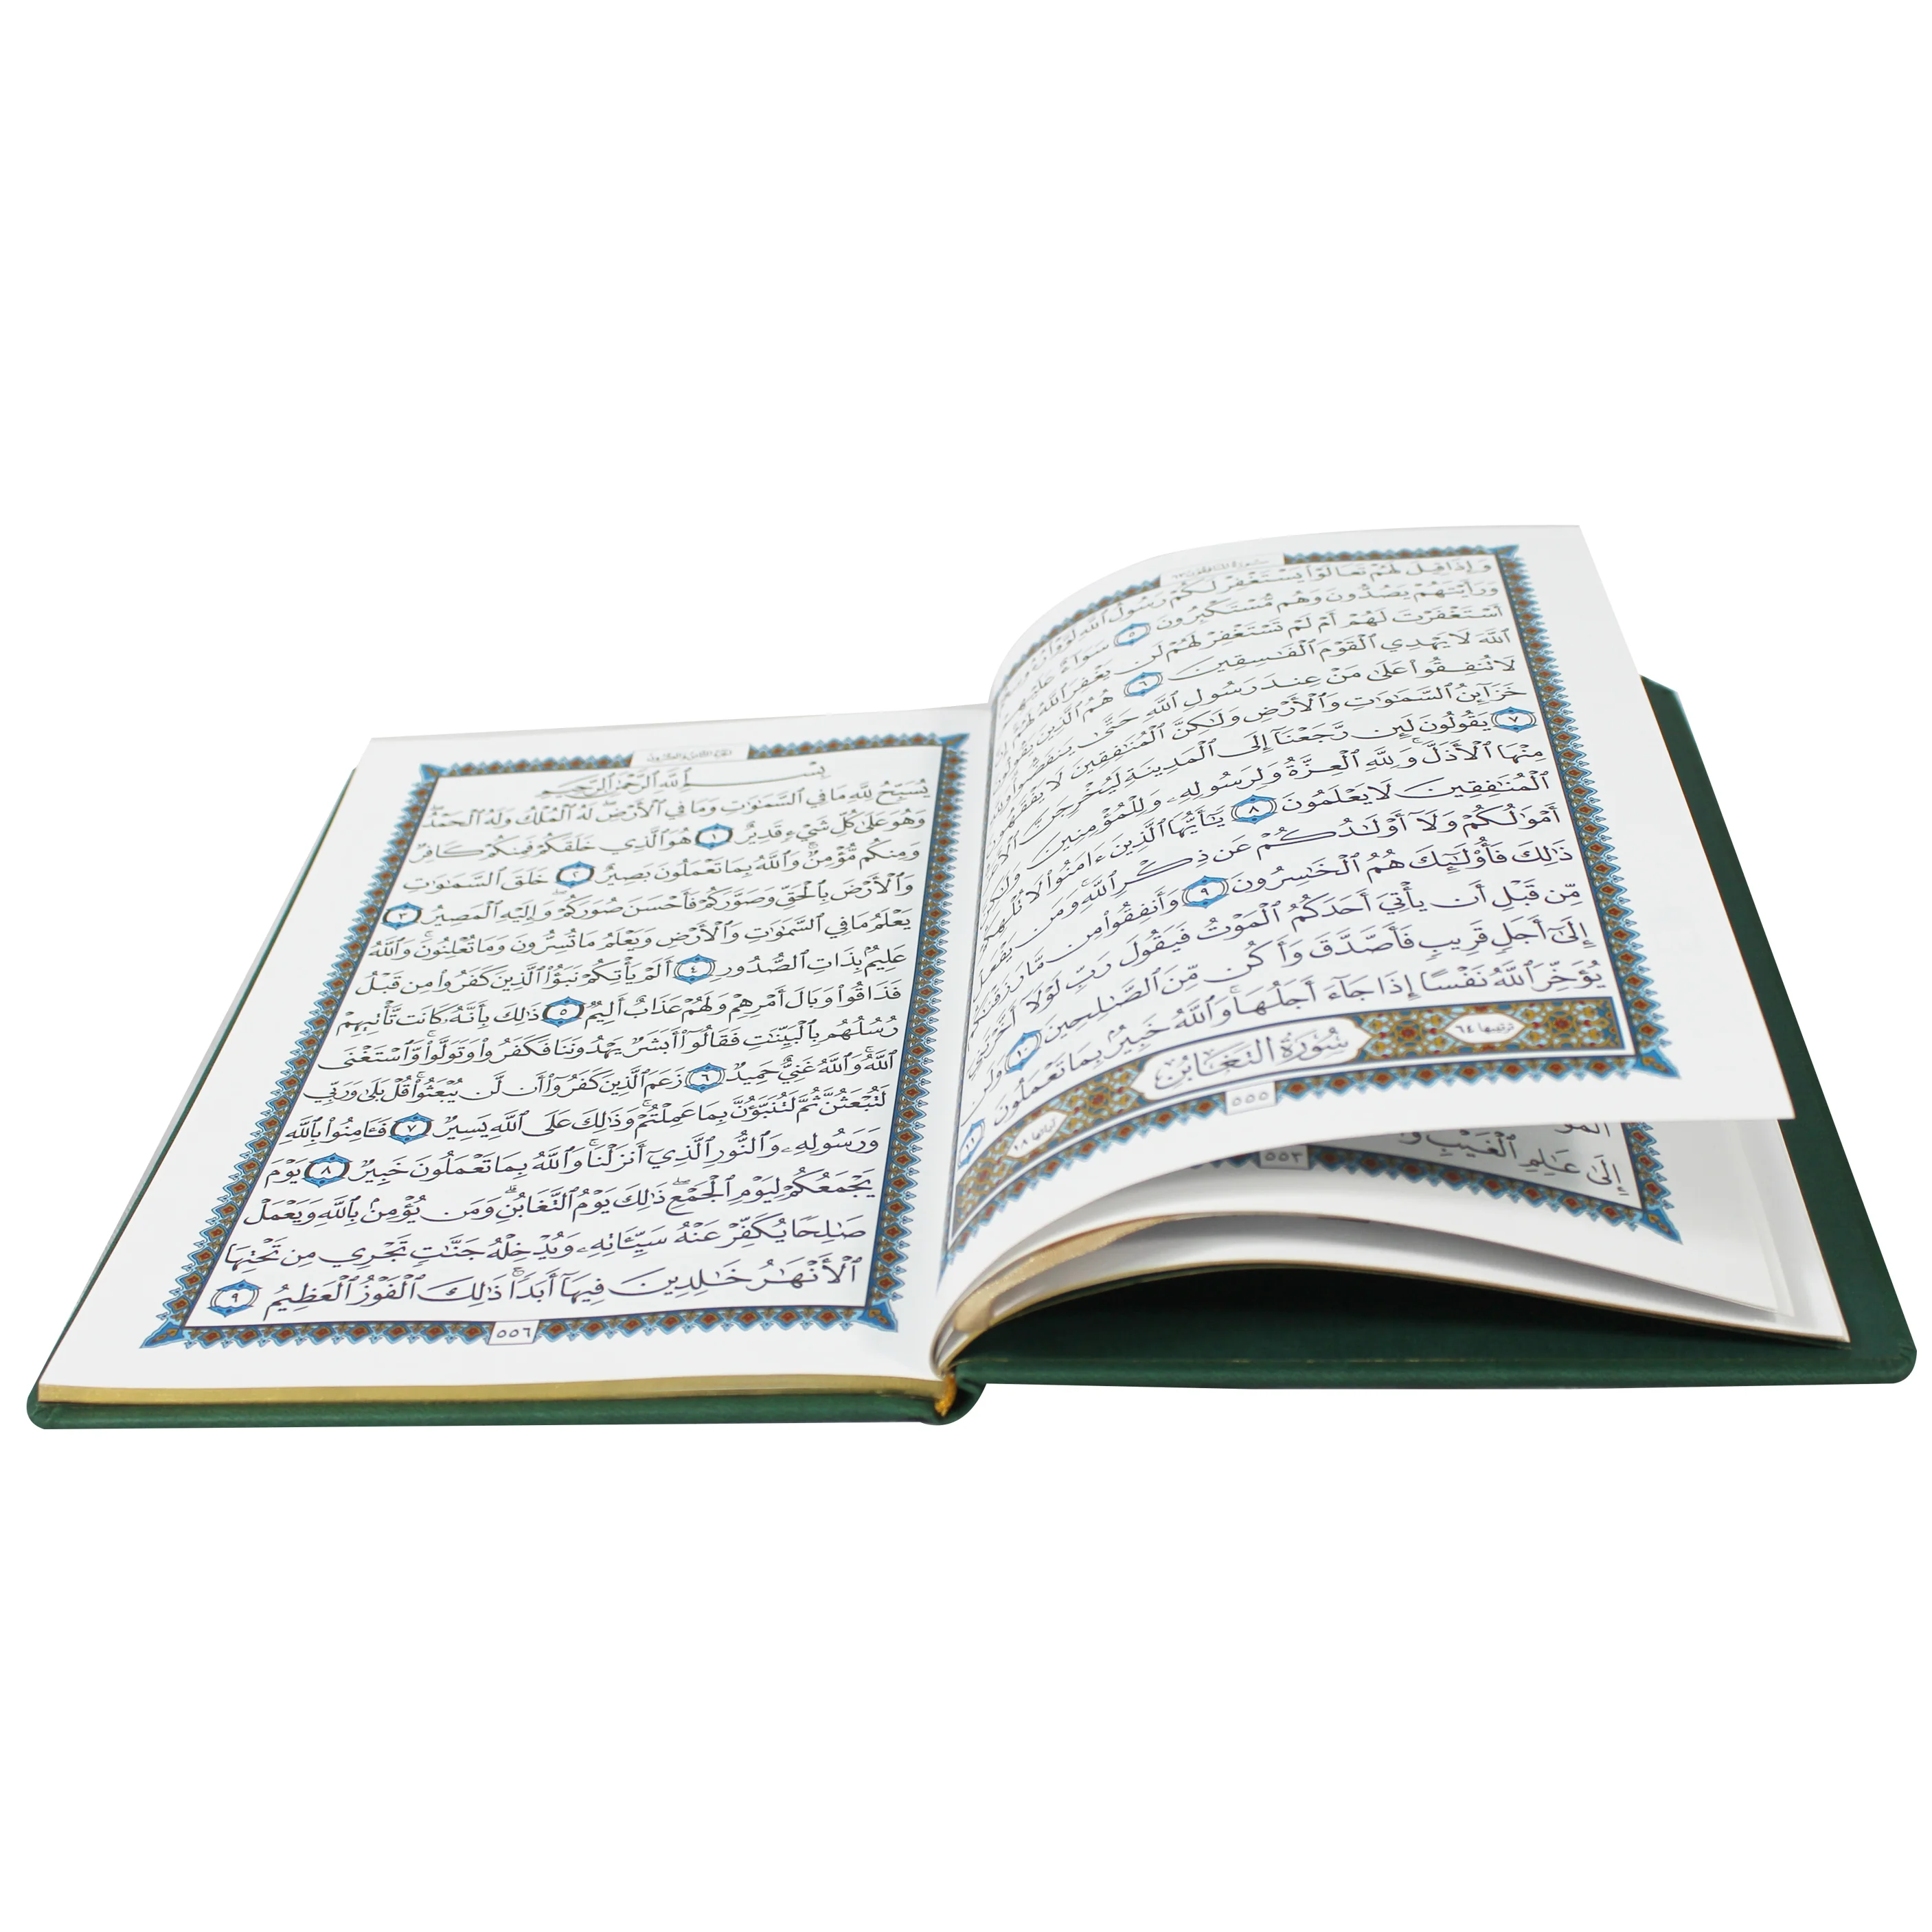 وَإِذَا قِيلَ لَهُمْ تَعَالَوْا۟ يَسْتَغْفِرْ لَكُمْ رَسُولُ ٱللَّهِ لَوَّوْا۟
وَرَأَيْتَهُمْ يَصُدُّونَ وَهُم مُّسْتَكْبِرُونَ ٥ سَوَآءٌ عَلَيْهِمْ
أَسْتَغْفَرْتَ لَهُمْ أَمْ لَمْ تَسْتَغْفِرْ لَهُمْ لَن يَغْفِرَ ٱللَّهُ لَهُمْ
ٱللَّهَ لَا يَهْدِي ٱلْقَوْمَ ٱلْفَٰسِقِينَ ٦ هُمُ ٱلَّذِينَ يَقُولُونَ
لَا تُنفِقُوا۟ عَلَىٰ مَنْ عِندَ رَسُولِ ٱللَّهِ حَتَّىٰ يَنفَضُّوا۟
خَزَآئِنُ ٱلسَّمَٰوَٰتِ وَٱلْأَرْضِ وَلَٰكِنَّ ٱلْمُنَٰفِقِينَ لَا يَفْقَهُونَ
٧ يَقُولُونَ لَئِن رَّجَعْنَآ إِلَى ٱلْمَدِينَةِ لَيُخْرِجَنَّ
مِنْهَا ٱلْأَذَلَّ وَلِلَّهِ ٱلْعِزَّةُ وَلِرَسُولِهِۦ وَلِلْمُؤْمِنِينَ وَلَٰكِنَّ
ٱلْمُنَٰفِقِينَ لَا يَعْلَمُونَ ٨ يَٰٓأَيُّهَا ٱلَّذِينَ ءَامَنُوا۟ لَا تُلْهِكُمْ
أَمْوَٰلُكُمْ وَلَآ أَوْلَٰدُكُمْ عَن ذِكْرِ ٱللَّهِ وَمَن يَفْعَلْ
ذَٰلِكَ فَأُو۟لَٰٓئِكَ هُمُ ٱلْخَٰسِرُونَ ٩ وَأَنفِقُوا۟ مِن مَّا رَزَقْنَٰكُم
مِّن قَبْلِ أَن يَأْتِيَ أَحَدَكُمُ ٱلْمَوْتُ فَيَقُولَ رَبِّ لَوْلَآ أَخَّرْتَنِي
إِلَىٰٓ أَجَلٍ قَرِيبٍ فَأَصَّدَّقَ وَأَكُن مِّنَ ٱلصَّٰلِحِينَ ١٠ وَلَن
يُؤَخِّرَ ٱللَّهُ نَفْسًا إِذَا جَآءَ أَجَلُهَا وَٱللَّهُ خَبِيرٌۢ بِمَا تَعْمَلُونَ ١١
ترتيبها ٦٤ سُورَةُ التَّغَابُن آياتها ١٨
٥٥٥
إِلَىٰ عَٰلِمِ ٱلْغَيْبِ
٥٥٣
بِسْمِ ٱللَّهِ ٱلرَّحْمَٰنِ ٱلرَّحِيمِ
يُسَبِّحُ لِلَّهِ مَا فِي ٱلسَّمَٰوَٰتِ وَمَا فِي ٱلْأَرْضِ لَهُ ٱلْمُلْكُ وَلَهُ ٱلْحَمْدُ
وَهُوَ عَلَىٰ كُلِّ شَيْءٍ قَدِيرٌ ١ هُوَ ٱلَّذِي خَلَقَكُمْ فَمِنكُمْ كَافِرٌ
وَمِنكُم مُّؤْمِنٌ وَٱللَّهُ بِمَا تَعْمَلُونَ بَصِيرٌ ٢ خَلَقَ ٱلسَّمَٰوَٰتِ
وَٱلْأَرْضَ بِٱلْحَقِّ وَصَوَّرَكُمْ فَأَحْسَنَ صُوَرَكُمْ وَإِلَيْهِ ٱلْمَصِيرُ ٣
يَعْلَمُ مَا فِي ٱلسَّمَٰوَٰتِ وَٱلْأَرْضِ وَيَعْلَمُ مَا تُسِرُّونَ وَمَا تُعْلِنُونَ وَٱللَّهُ
عَلِيمٌۢ بِذَاتِ ٱلصُّدُورِ ٤ أَلَمْ يَأْتِكُمْ نَبَؤُا۟ ٱلَّذِينَ كَفَرُوا۟ مِن قَبْلُ
فَذَاقُوا۟ وَبَالَ أَمْرِهِمْ وَلَهُمْ عَذَابٌ أَلِيمٌ ٥ ذَٰلِكَ بِأَنَّهُۥ كَانَت تَّأْتِيهِمْ
رُسُلُهُم بِٱلْبَيِّنَٰتِ فَقَالُوٓا۟ أَبَشَرٌ يَهْدُونَنَا فَكَفَرُوا۟ وَتَوَلَّوا۟ وَّٱسْتَغْنَى
ٱللَّهُ وَٱللَّهُ غَنِيٌّ حَمِيدٌ ٦ زَعَمَ ٱلَّذِينَ كَفَرُوٓا۟ أَن لَّن يُبْعَثُوا۟ قُلْ بَلَىٰ وَرَبِّي
لَتُبْعَثُنَّ ثُمَّ لَتُنَبَّؤُنَّ بِمَا عَمِلْتُمْ وَذَٰلِكَ عَلَى ٱللَّهِ يَسِيرٌ ٧ فَـَٔامِنُوا۟ بِٱللَّهِ
وَرَسُولِهِۦ وَٱلنُّورِ ٱلَّذِيٓ أَنزَلْنَا وَٱللَّهُ بِمَا تَعْمَلُونَ خَبِيرٌ ٨ يَوْمَ
يَجْمَعُكُمْ لِيَوْمِ ٱلْجَمْعِ ذَٰلِكَ يَوْمُ ٱلتَّغَابُنِ وَمَن يُؤْمِنۢ بِٱللَّهِ وَيَعْمَلْ
صَٰلِحًا يُكَفِّرْ عَنْهُ سَيِّـَٔاتِهِۦ وَيُدْخِلْهُ جَنَّٰتٍ تَجْرِي مِن تَحْتِهَا
ٱلْأَنْهَٰرُ خَٰلِدِينَ فِيهَآ أَبَدًا ذَٰلِكَ ٱلْفَوْزُ ٱلْعَظِيمُ ٩
٥٥٦